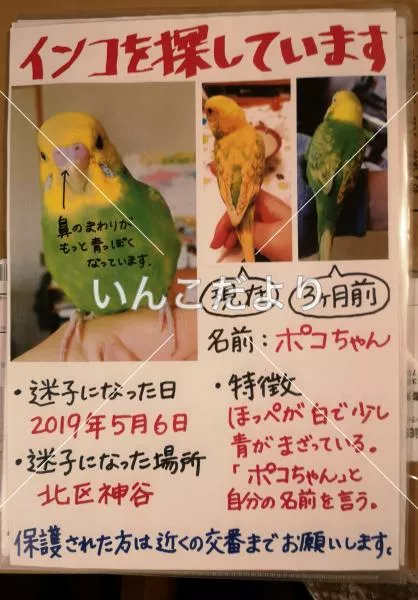 インコを探しています
鼻のまわりが
もっと青っぽく
なっています。
いんこだより
現在
3ヶ月前
名前:ポコちゃん
・迷子になった日
2019年5月6日
・迷子になった場所
北区神谷
・特徴
ほっぺが白で少し
青がまざっている。
「ポコちゃん」と
自分の名前を言う。
保護された方は近くの交番までお願いします。